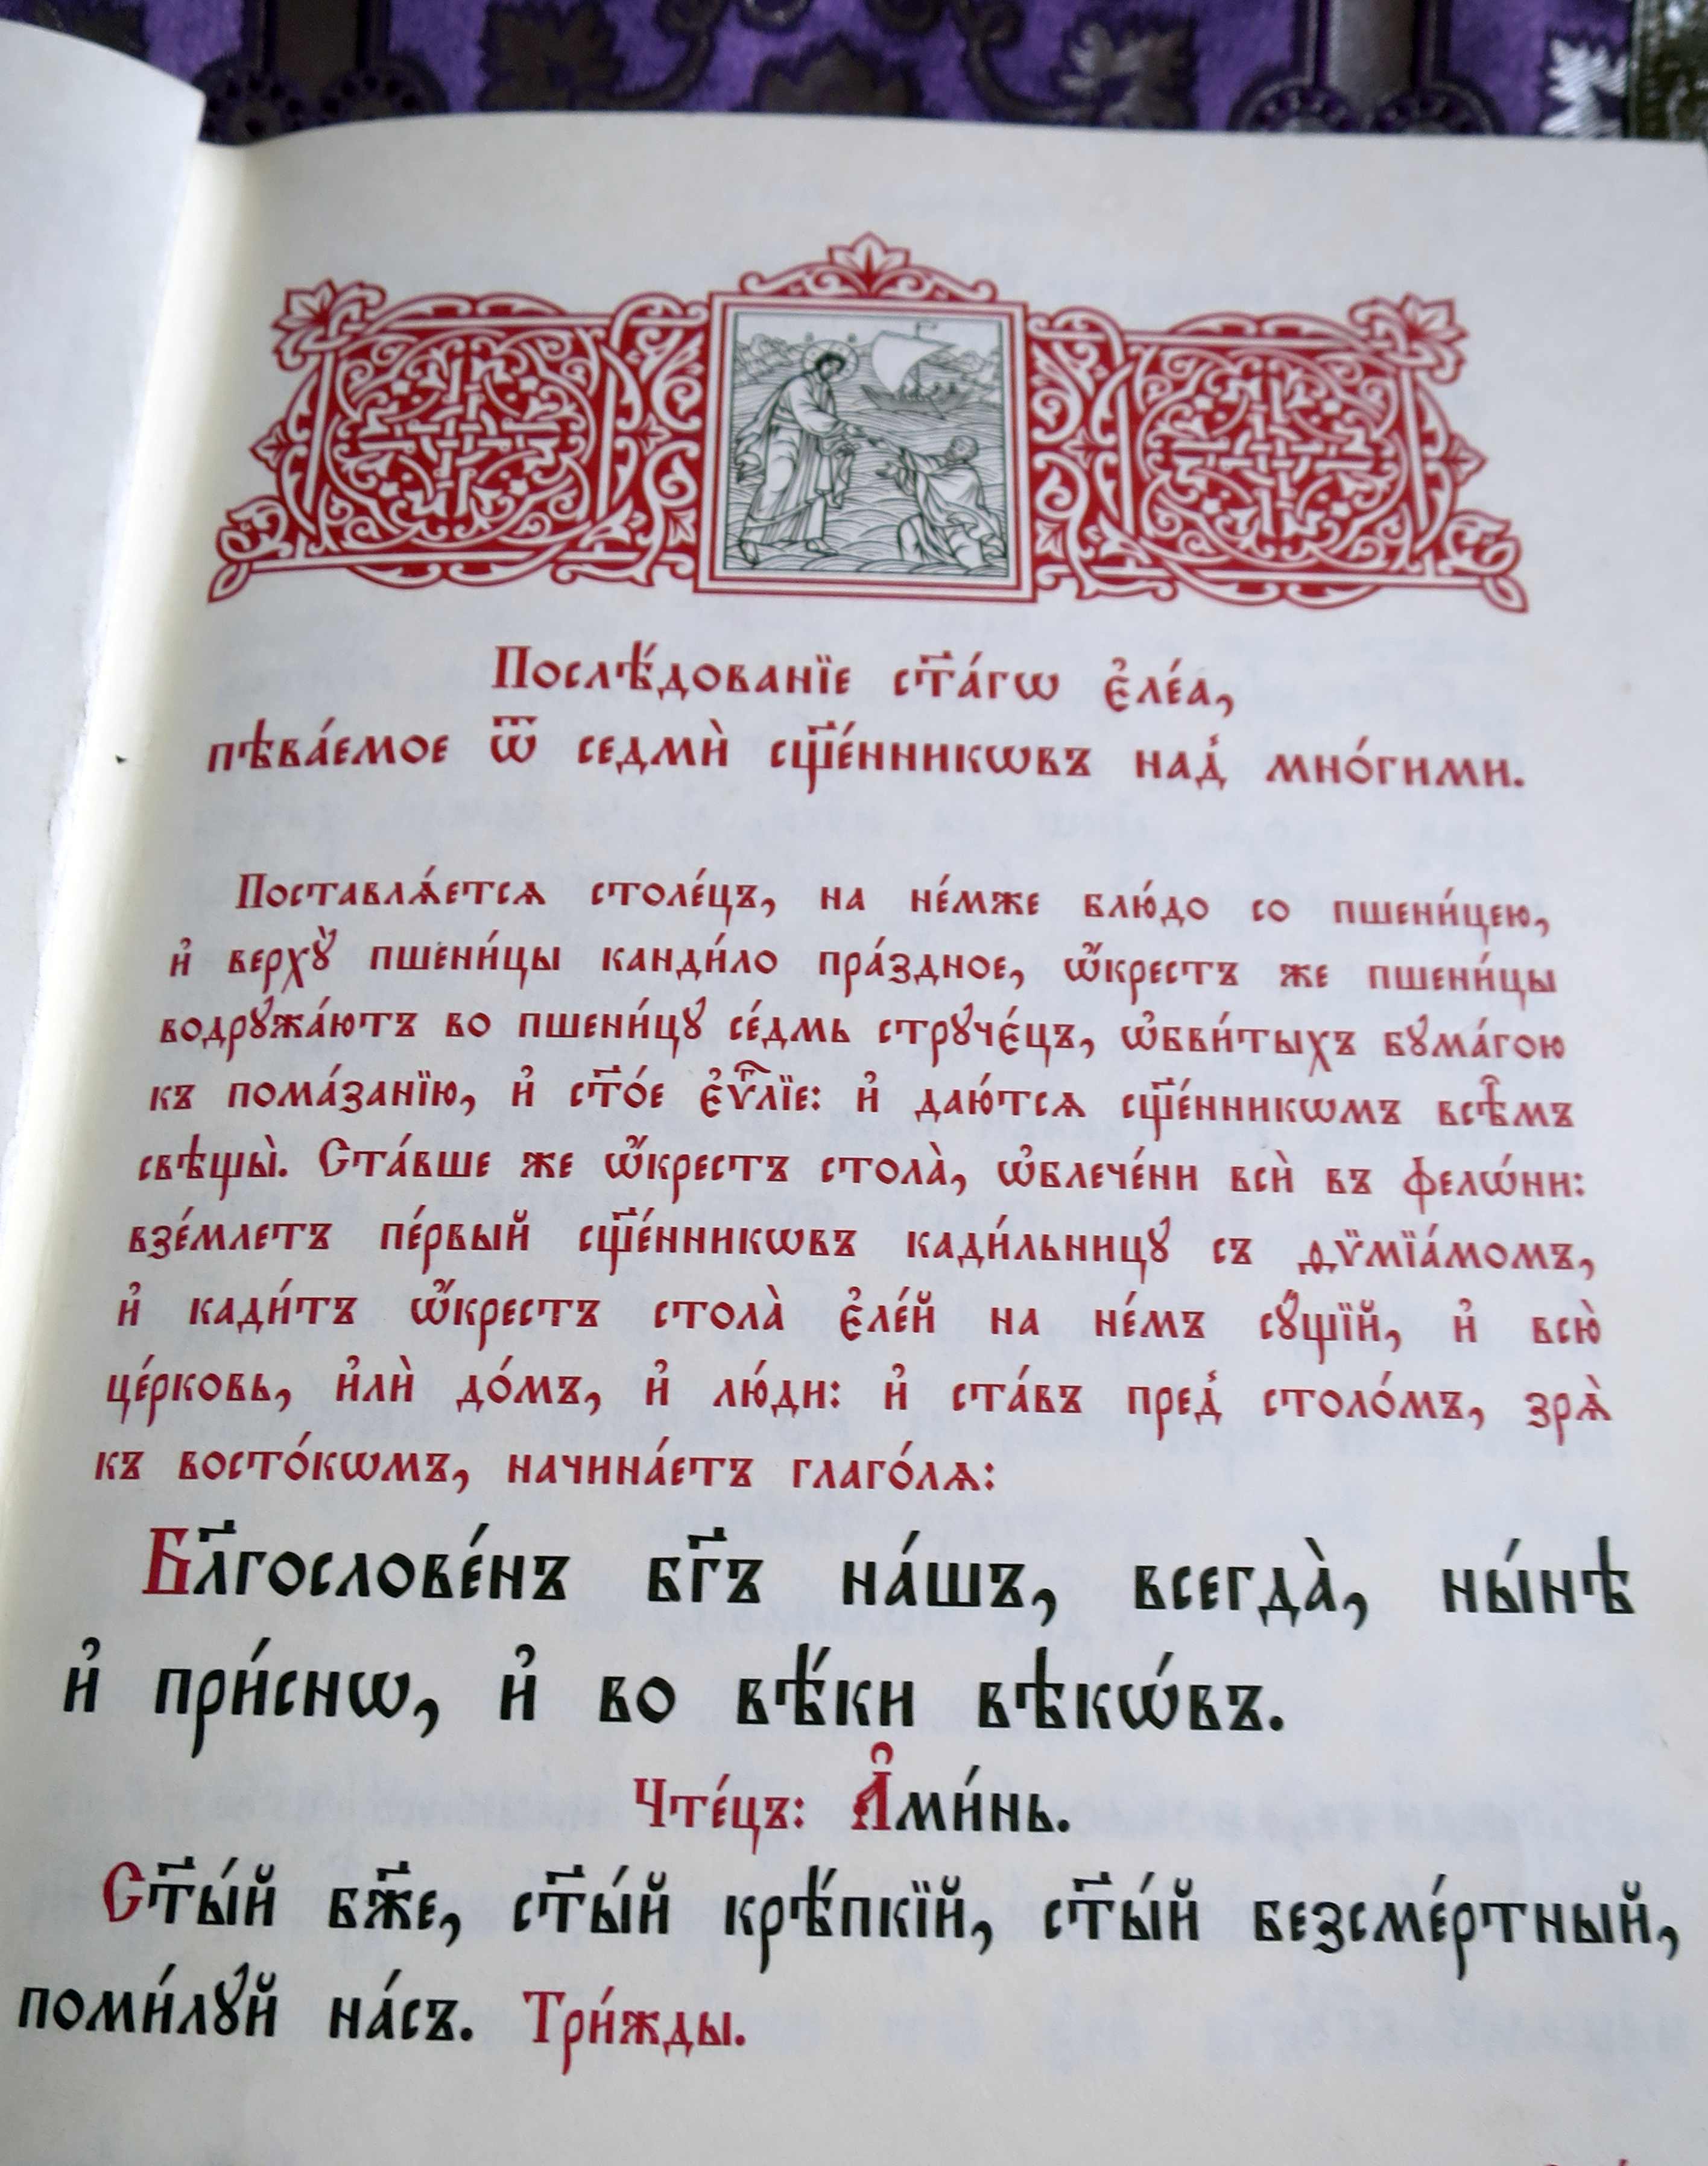 Послѣ́дованїе ст҃а́гѡ є҆ле́а,
пѣва́емое ѿ седмѝ сщ҃е́нникѡвъ над̾ мно́гими.
Поставлѧ́етсѧ столе́цъ, на не́мже блю́до со пшени́цею,
и҆ верхꙋ̀ пшени́цы канди́ло пра́здное, ѡ҆́крестъ же пшени́цы
водрꙋжа́ютъ во пшени́цꙋ се́дмь стрꙋчє́цъ, ѡ҆бви́тыхъ бꙋма́гою
къ пома́занїю, и҆ ст҃о́е є҆ѵⷢ҇лїе: и҆ даю́тсѧ сщ҃е́нникѡмъ всѣ̑мъ
свѣщы̀. Ста́вше же ѡ҆́крестъ стола̀, ѡ҆блече́ни всѝ въ фелѡ́ни:
взе́млетъ пе́рвый сщ҃е́нникѡвъ кади́льницꙋ съ ѳѷмїа́момъ,
и҆ кади́тъ ѡ҆́крестъ стола̀ є҆ле́й на не́мъ сꙋ́щїй, и҆ всю̀
це́рковь, и҆лѝ до́мъ, и҆ лю́ди: и҆ ста́въ пред̾ столо́мъ, зрѧ̀
къ восто́кѡмъ, начина́етъ глаго́лѧ:
Бл҃гослове́нъ бг҃ъ на́шъ, всегда̀, ны́нѣ
и҆ при́снѡ, и҆ во вѣ́ки вѣкѡ́въ.
Чте́цъ: А҆ми́нь.
Ст҃ы́й бж҃е, ст҃ы́й крѣ́пкїй, ст҃ы́й безсме́ртный,
поми́лꙋй на́съ. Три́жды.